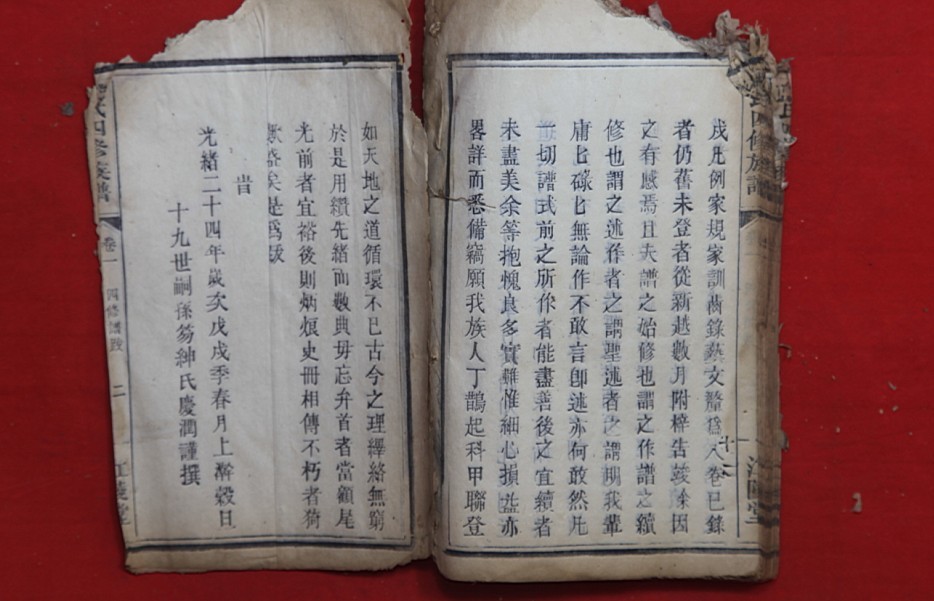 成凡例家規家訓蕳錄藝文釐爲八卷已錄
者仍舊未登者從新越數月附梓告竣余因
之有感焉且夫譜之始修也謂之作譜之續
修也謂之述作者之謂聖述者之謂明我輩
庸匕碌匕無論作不敢言卽述亦何敢然凡
切譜式前之所作者能盡善後之宜續者
未盡美余等抱愧良多實難惟細心損益亦
畧詳而悉備竊願我族人丁鵲起科甲聯登
如天地之道循環不已古今之理繹絡無窮
於是用纘先緒而敷典毋忘弁首者當顧尾
光前者宜裕後則炳烺史冊相傳不朽者猗
歟盛矣是爲跋
旹
光緒二十四年歲次戊戌季春月上澣穀旦
十九世嗣孫笏紳氏慶潤謹撰
氏四修族譜
卷一
四修譜跋
二
江陵堂
四修族譜